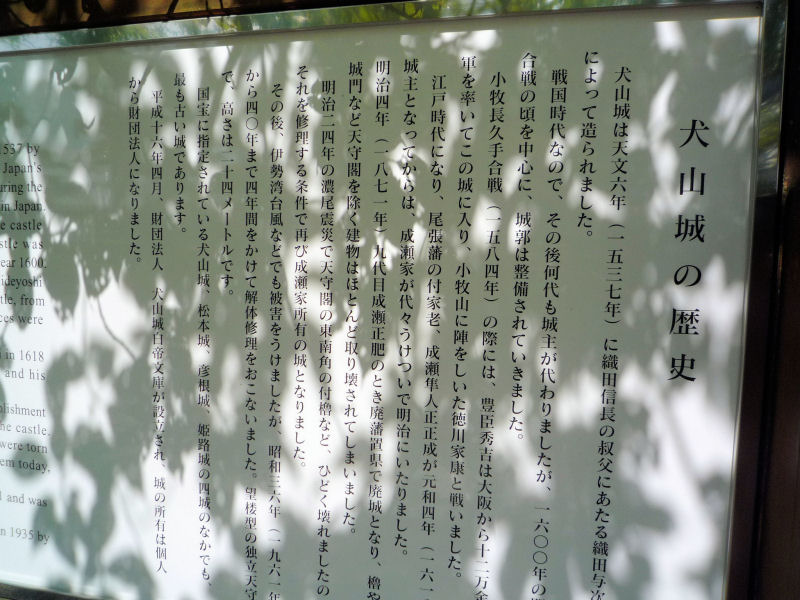 犬山城の歴史
犬山城は天文六年（一五三七年）に織田信長の叔父にあたる織田与次
によって造られました。
戦国時代なので、その後何代も城主が代わりましたが、一六〇〇年の
合戦の頃を中心に、城郭は整備されていきました。
小牧長久手合戦（一五八四年）の際には、豊臣秀吉は大阪から十二万余
軍を率いてこの城に入り、小牧山に陣をしいた徳川家康と戦いました。
江戸時代になり、尾張藩の付家老、成瀬隼人正正成が元和四年（一六一
城主となってからは、成瀬家が代々うけついで明治にいたりました。
明治四年（一八七一年）九代目成瀬正肥のとき廃藩置県で廃城となり、櫓や
城門など天守閣を除く建物はほとんど取り壊されてしまいました。
明治二四年の濃尾震災で天守閣の東南角の付櫓など、ひどく壊れましたの
それを修理する条件で再び成瀬家所有の城となりました。
その後、伊勢湾台風などでも被害をうけましたが、昭和三六年（一九六一年
から四〇年まで四年間をかけて解体修理をおこないました。望楼型の独立天守
で、高さは二十四メートルです。
国宝に指定されている犬山城、松本城、彦根城、姫路城の四城のなかでも、
最も古い城であります。
平成十六年四月、財団法人　犬山城白帝文庫が設立され、城の所有は個人
から財団法人になりました。
1537 by
Japan's
uring the
in Japan.
e castle
stle was
ear 1600.
ideyoshi
tle, from
ces were
in 1618
and his
olishment
he castle.
were torn
em today,
1 and was
n 1935 by